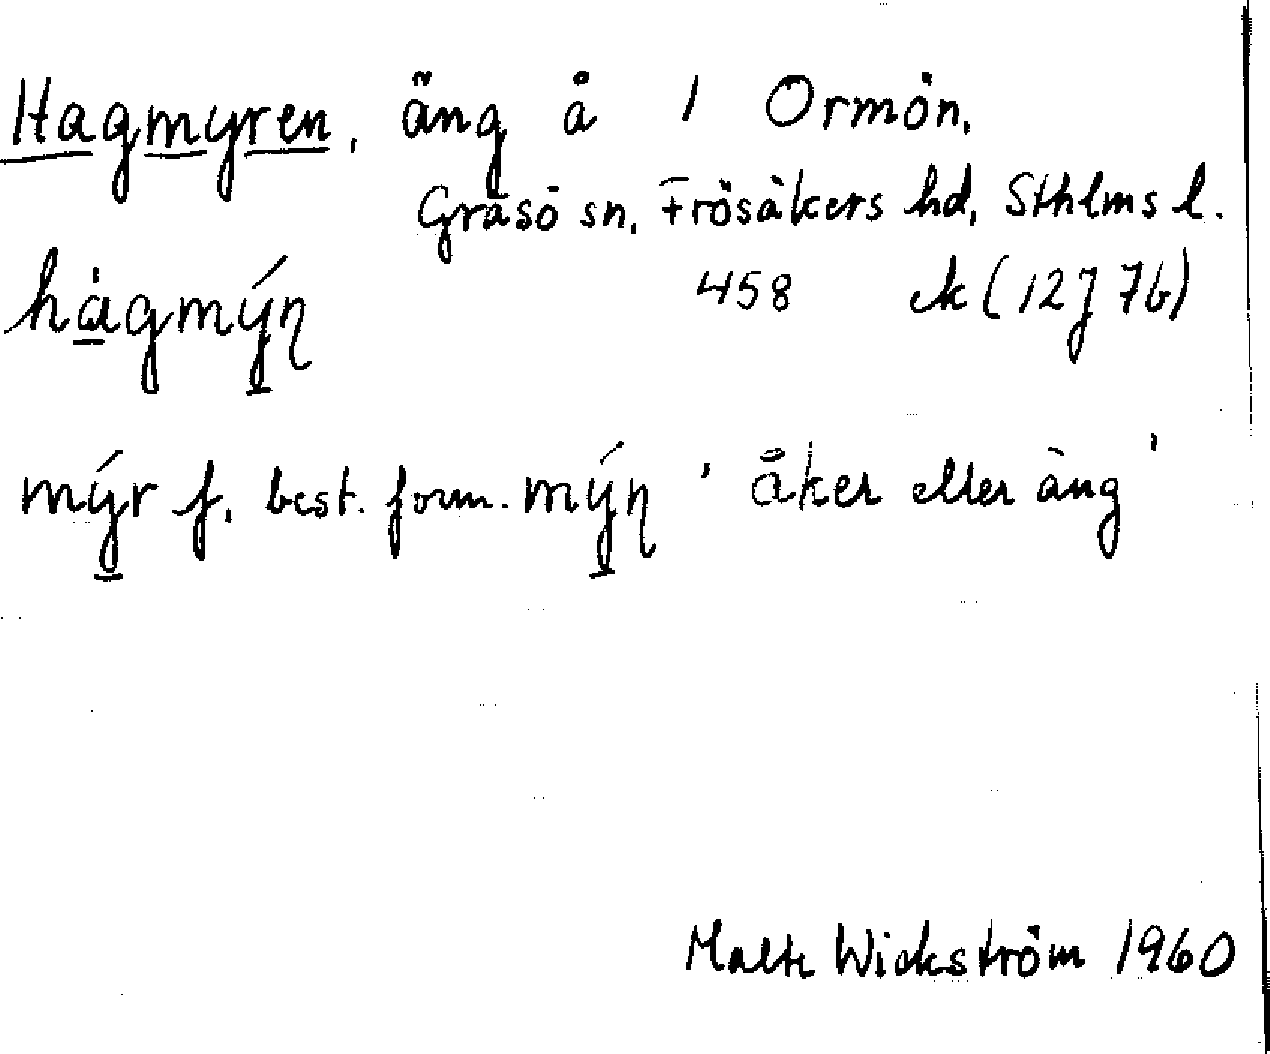 Hagmyren, äng å 1 Ormön,
Gräsö sn, Frösåkers hd, Sthlms l.
hàgmýn̥ 458 ek (12J 7b)
mýr f, best. form. mýn̥ 'åker eller äng'
Malte Wickström 1960